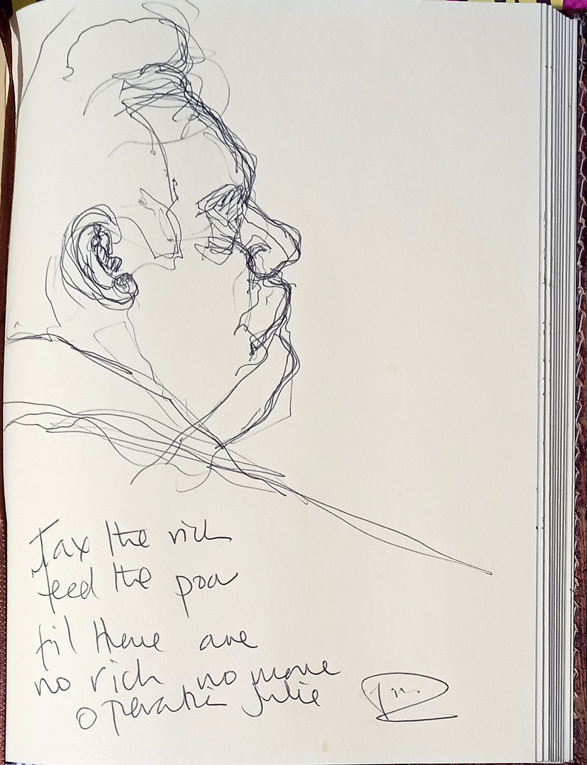 Tax the rich
feed the poor
til there are
no rich no more
operation Julie